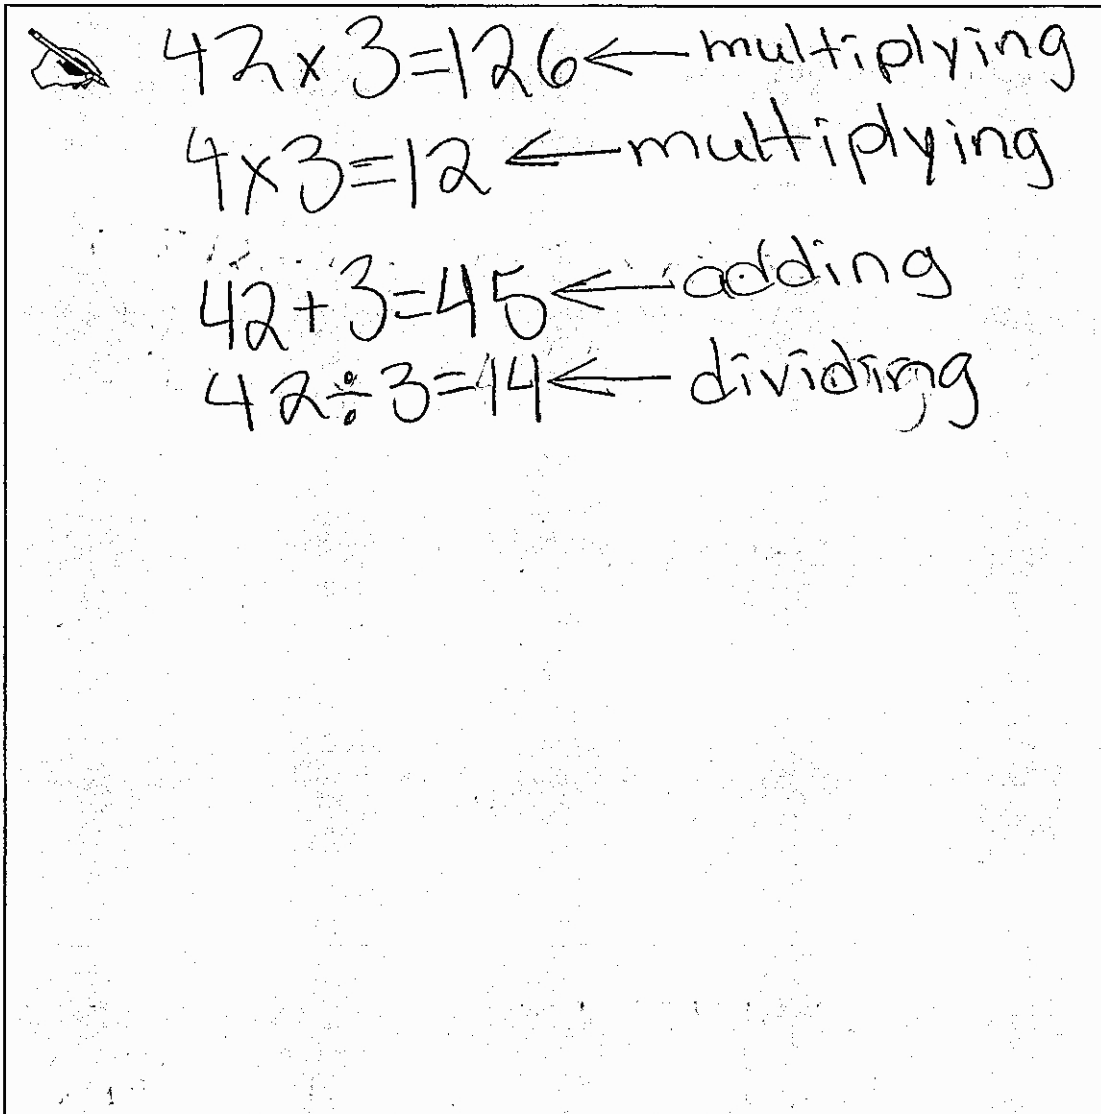 42 x 3=126 ← multiplying
4x3=12 ← multiplying
42+3=45 ← adding
42÷3=14 ← dividing